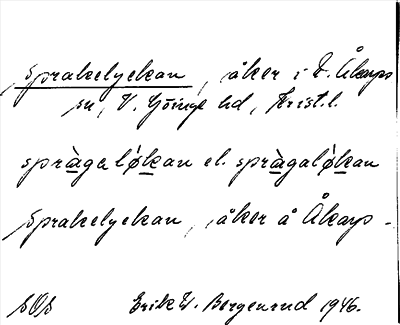 Sprakelyckan, åker i V. Åkarps
sn, V. Göinge hd, Krist. l.
spràgaló̱kan el. spràgaló̱kan
Sprakelyckan, åker å Åkarp -
SOs Erik W. Bergenrud 1946.